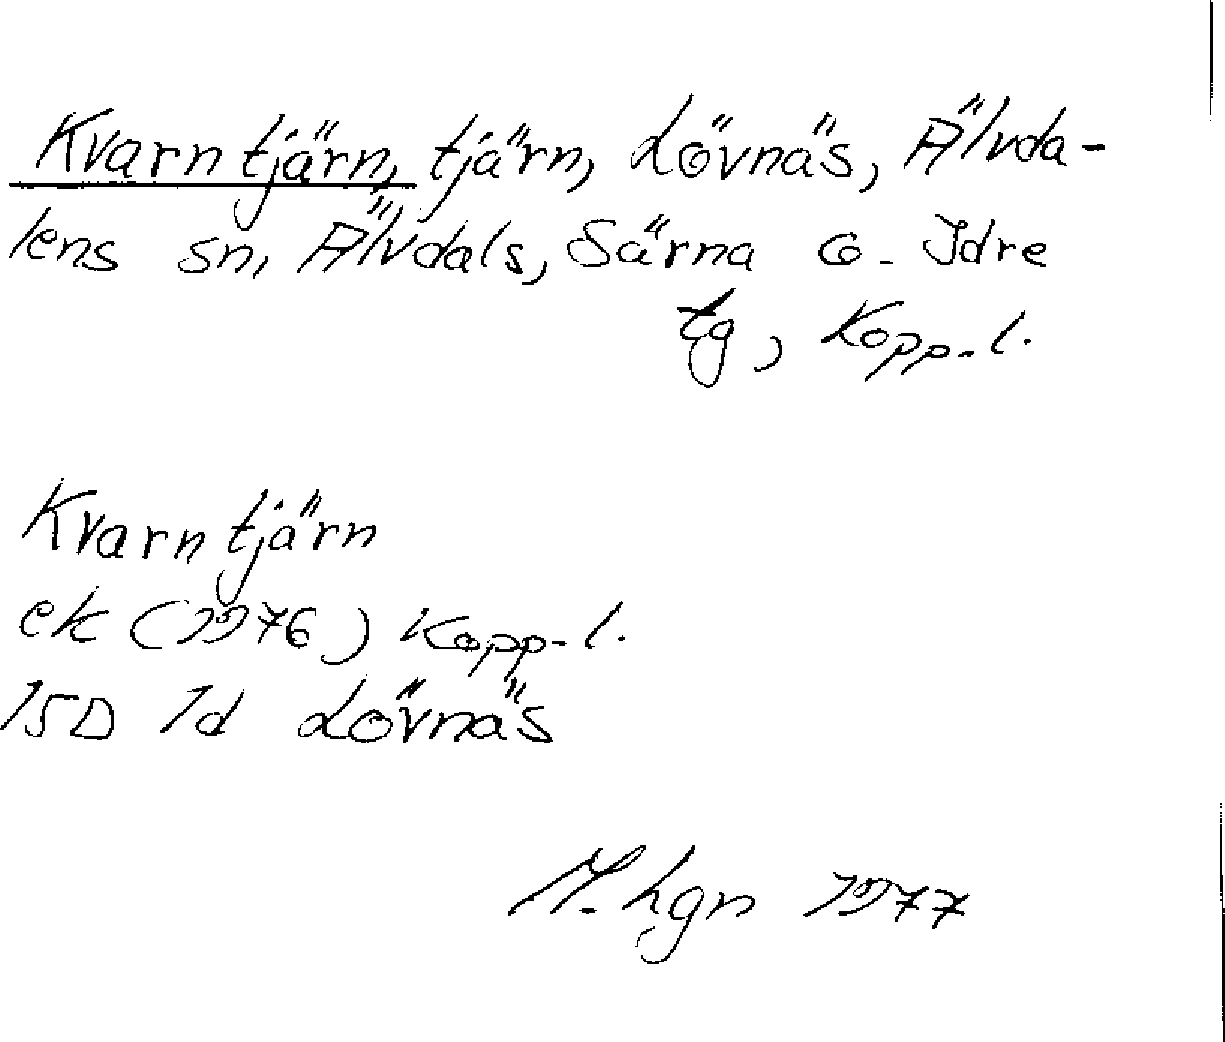 Kvarntjärn, tjärn, Lövnäs, Älvda-
lens sn, Älvdals, Särna o. Idre
tg, Kopp-l.
Kvarntjärn
ek (1976) Kopp-l.
15D 1d Lövnäs
hgn 1977